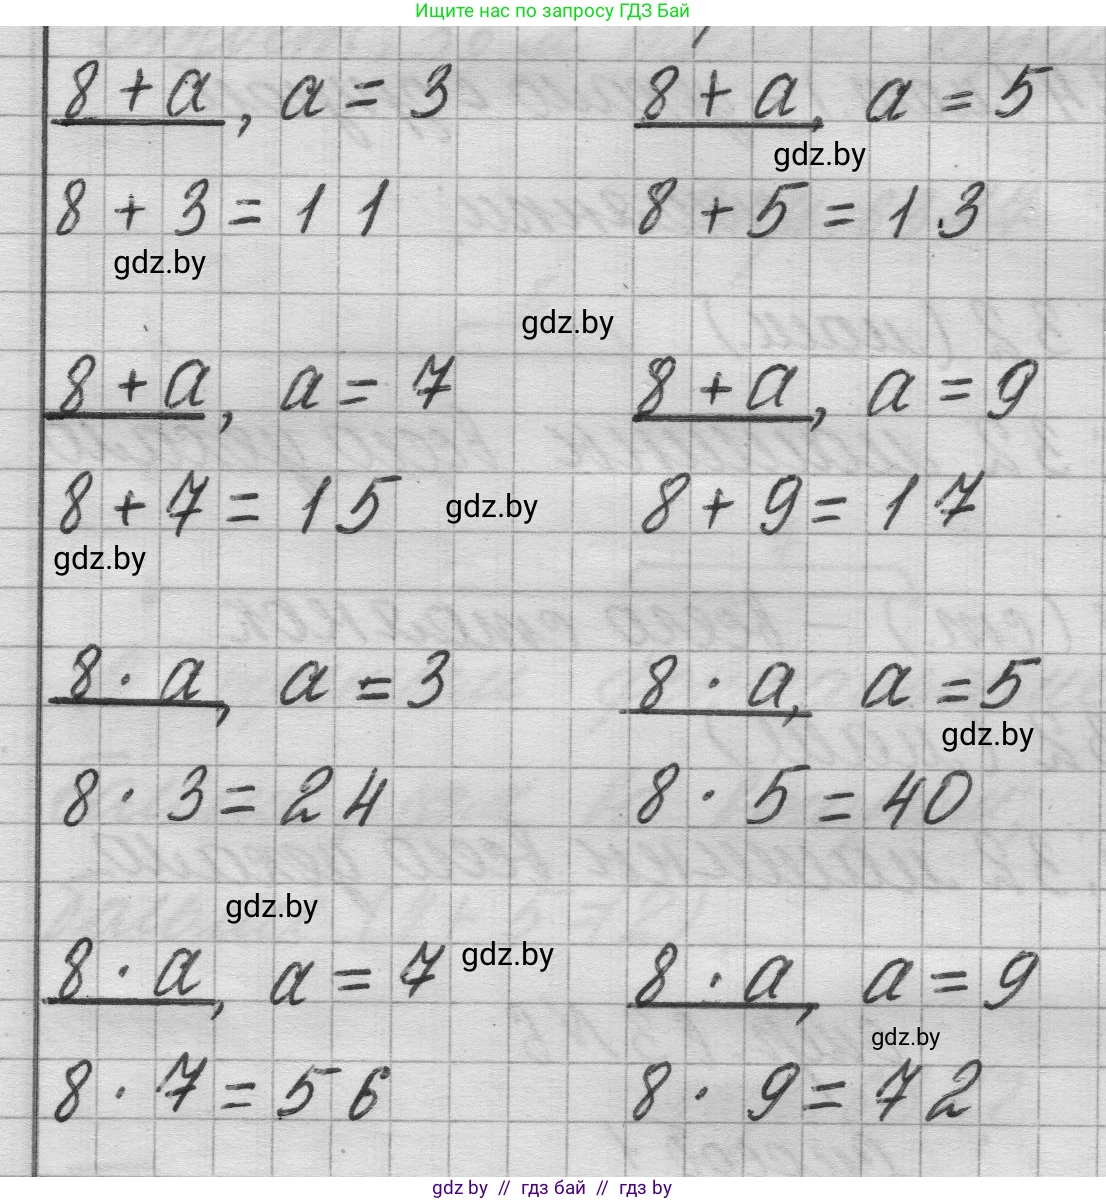 Ищите нас по запросу ГДЗ Бай
8 + а, а = 3
8 + а, а = 5
gdz.by
8 + 3 = 11
8 + 5 = 13
gdz.by
gdz.by
8 + а, а = 7
8 + а, а = 9
8 + 7 = 15
gdz.by
8 + 9 = 17
gdz.by
8 · а, а = 3
8 · а, а = 5
gdz.by
8 · 3 = 24
8 · 5 = 40
gdz.by
8 · а, а = 7
gdz.by
8 · а, а = 9
gdz.by
8 · 7 = 56
8 · 9 = 72
gdz.by // гдз бай // гдз by